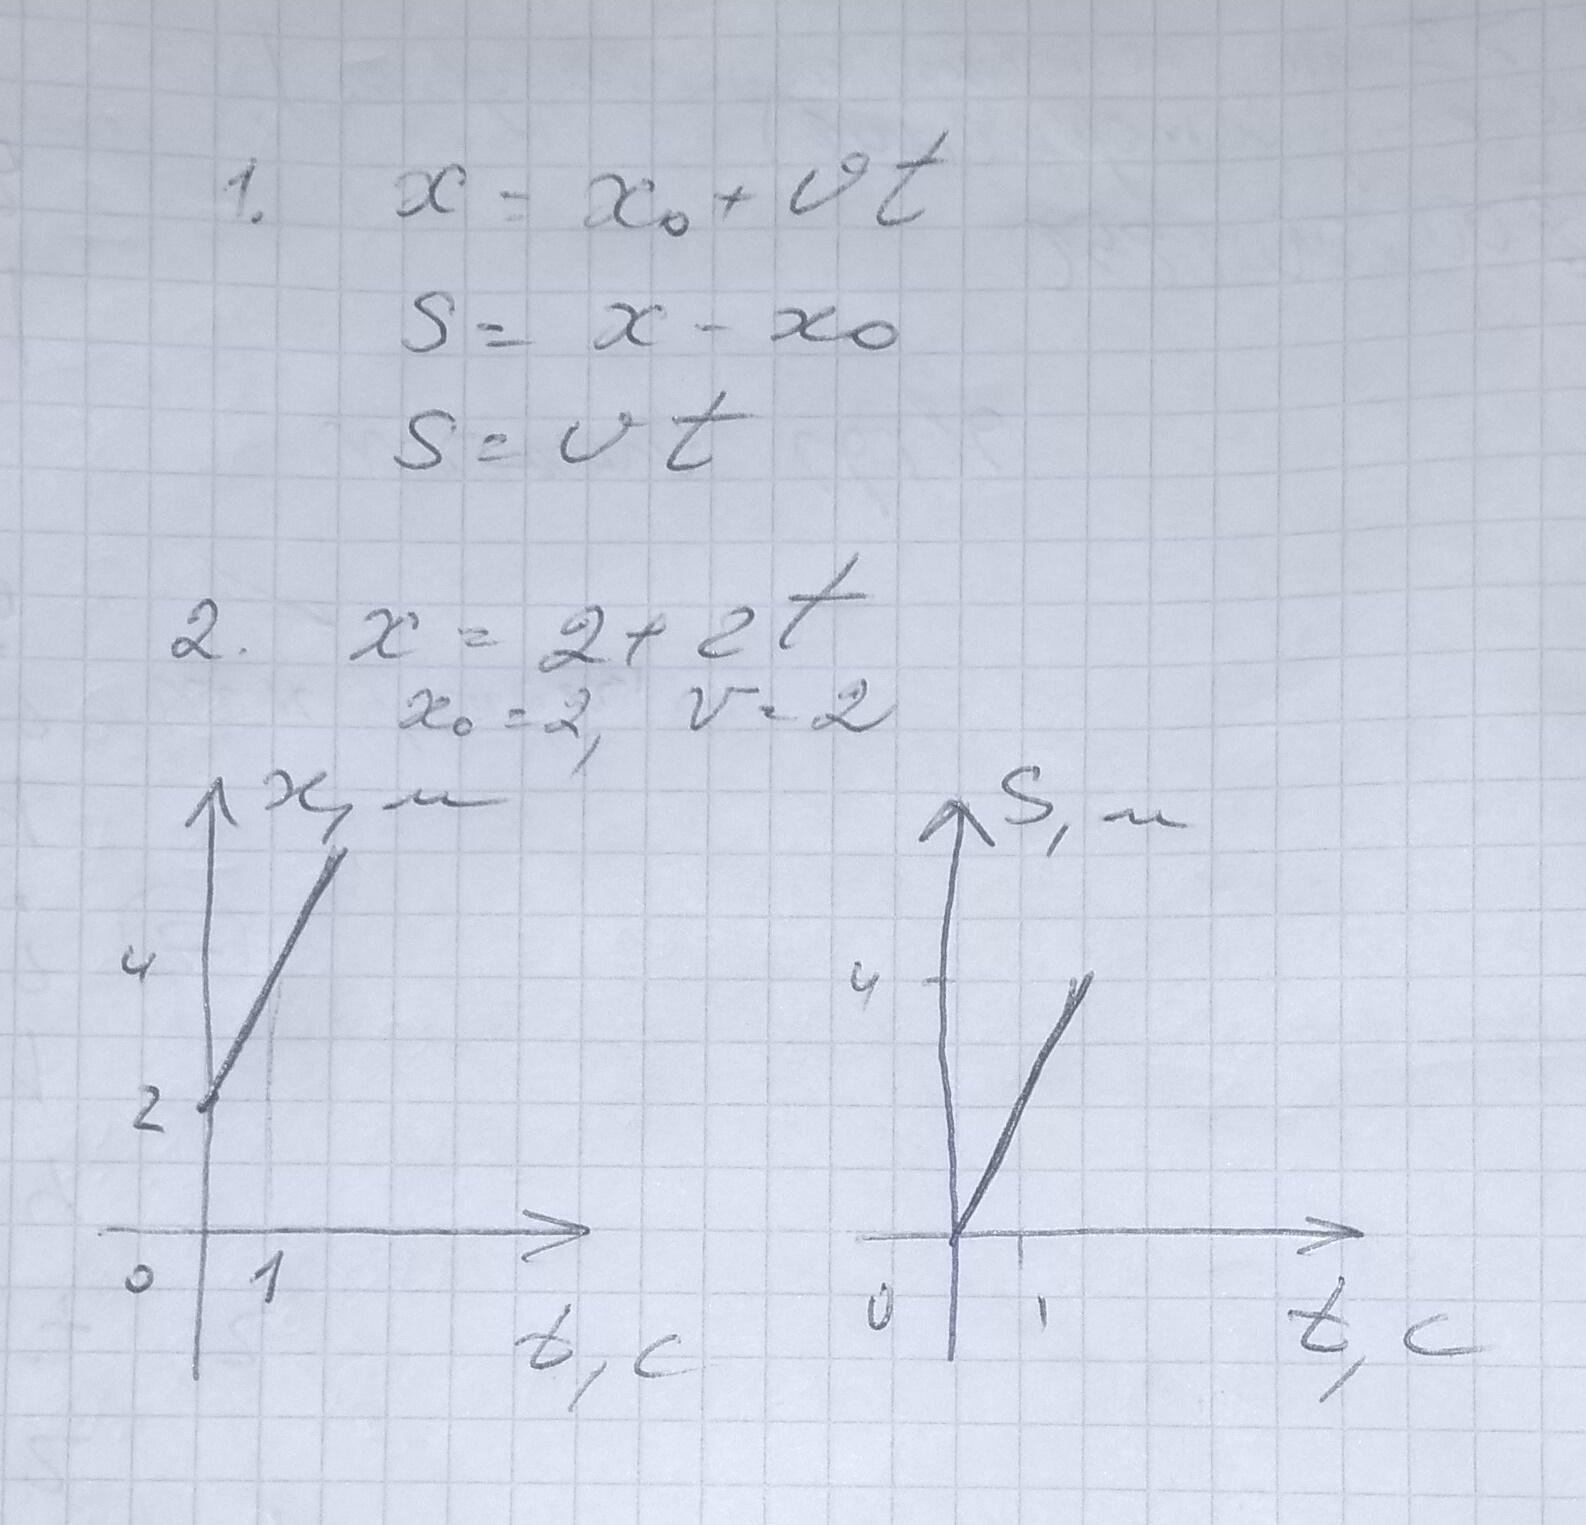 1. x = x₀ + υt
S = x - x₀
S = υt
2. x = 2 + 2t
x₀ = 2, v = 2
x, м
4
2
0 1
t, c
S, м
4
0 1
t, c